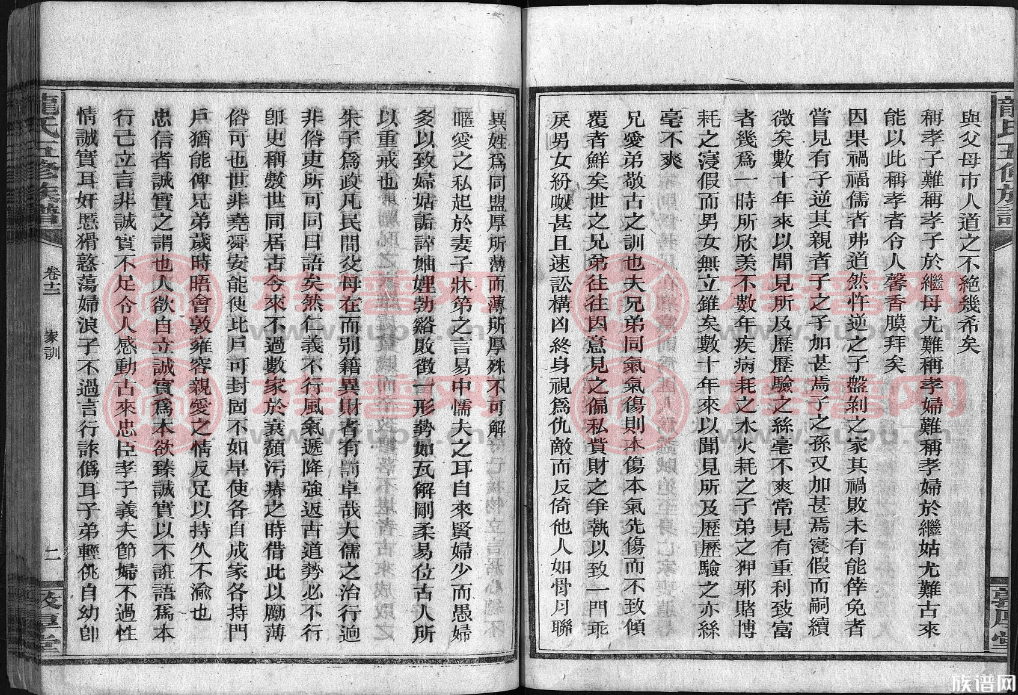 與父母市人道之不絕幾希矣
稱孝子難稱孝子於繼母尤難稱孝婦難稱孝婦於繼姑尤難古來
能以此稱孝者令人馨香膜拜矣
因果禍福儒者弗道然忤逆之子盤剝之家其禍敗未有能倖免者
嘗見有子逆其親者子之子加甚焉子之孫又加甚焉寖假而嗣續
微矣數十年來以聞見所及歷歷驗之絲毫不爽常見有重利致富
者幾爲一時所欣羨不數年疾病耗之水火耗之子弟之狎邪賭博
耗之寖假而男女無立錐矣數十年來以聞見所及歷歷驗之亦絲
毫不爽
兄愛弟敬古之訓也夫兄弟同氣氣傷則本傷本氣先傷而不致傾
覆者鮮矣世之兄弟往往因意見之偏私貲財之爭執以致一門乖
戾男女紛呶甚且速訟構凶終身視爲仇敵而反倚他人如骨肉聯
異姓爲同盟厚所薄而薄所厚殊不可解
暱愛之私起於妻子牀第之言易中懦夫之耳自來賢婦少而愚婦
多以致婦姑詬誶妯娌勃谿敗徵一形勢如瓦解剛柔易位古人所
以重戒也
朱子爲政凡民間父母在而别籍異財者有罰卓哉大儒之治行迥
非俗吏所可同日語矣然仁義不行風氣遞降強返古道勢必不行
卽史稱數世同居古今來不過數家於衰頽污瘠之時借此以勵薄
俗可也世非堯舜安能使比戶可封固不如早使各自成家各持門
戶猶能俾兄弟歲時晤會敦雍容親愛之情反足以持久不渝也
忠信者誠實之謂也人欲自立誠實爲本欲臻誠實以不誑語爲本
行己立言非誠實不足令人感動古來忠臣孝子義夫節婦不過性
情誠實耳奸慝猾憝蕩婦浪子不過言行詐僞耳子弟輕佻自幼卽
龍氏五修族譜
卷十二
家訓
二
敦厚堂
族谱网
www.yupu.cn
族谱网